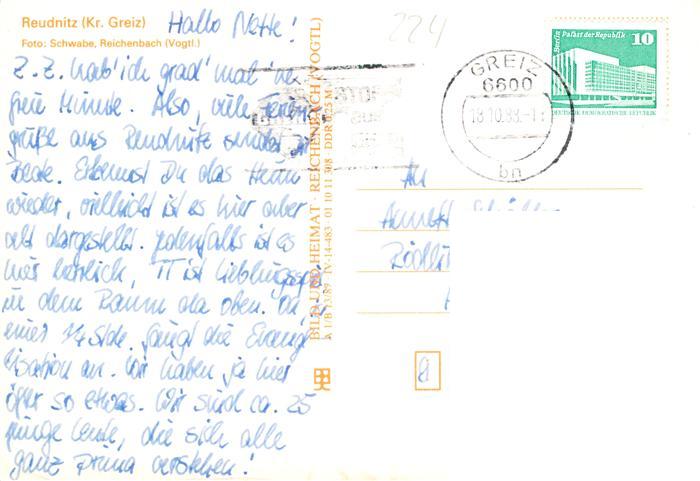 Reudnitz (Kr. Greiz)
Foto: Schwabe, Reichenbach (Vogtl.)
Hallo Nette!
Z. Z. hab' ich grad' mal 'ne
freie Minute. Also, viele
grüße aus Reudnitz sendet
Beate. Erkennst Du das Heim
wieder, vielleicht ist es hier aber
alt dargestellt. Jedenfalls ist es
hier herrlich, TT ist Lieblings
in dem Raum da oben. In
einer 1/4 Stde. fängt die Evangl
isation an. Wir haben ja hier
öfter so etwas. Wir sind ca. 25
junge Leute, die sich alle
ganz prima verstehen!
BILD UND HEIMAT · REICHENBACH (VOGTL)
A 1/B 13/89 IV-14-483 · 01 10 11 308 DDR 0,25 M
224
GREIZ
6600
18.10.89.-1
bn
Berlin Palast der Republik
10
DEUTSCHE DEMOKRATISCHE REPUBLIK
An
Annett